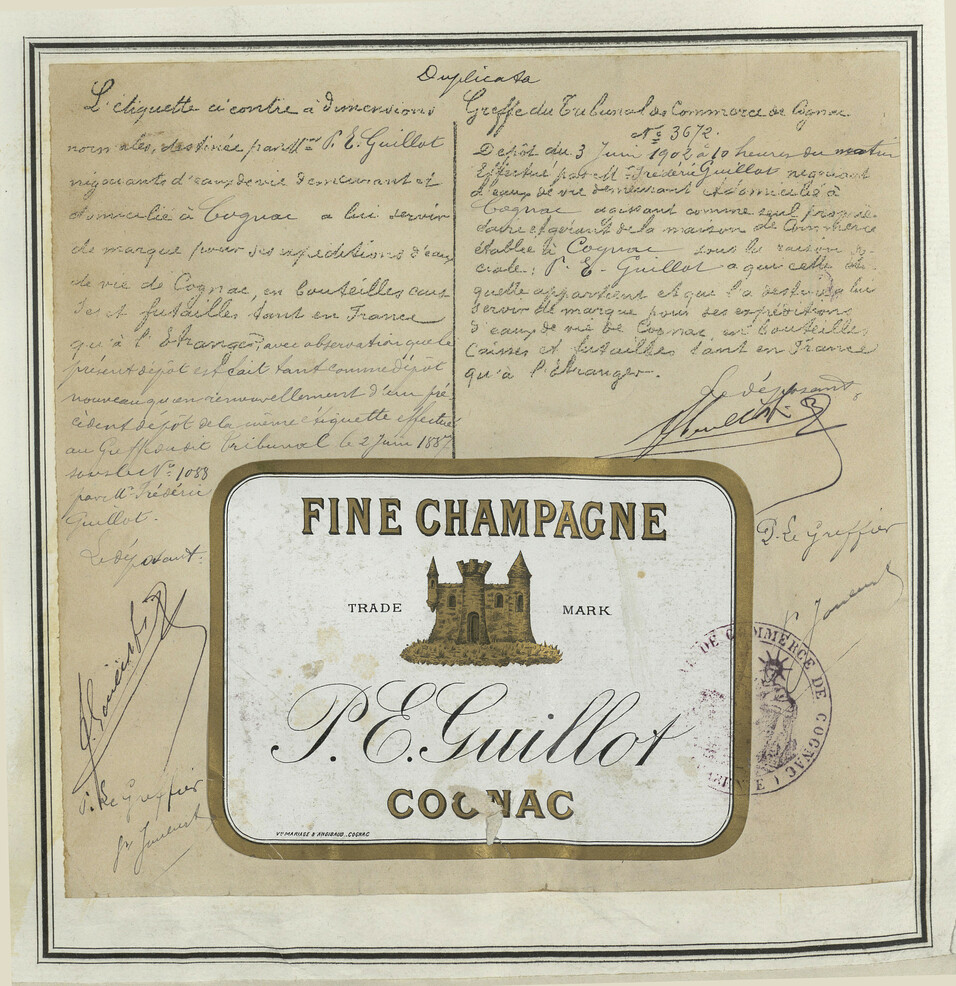 Duplicata
L'étiquette ci contre à dimensions
normales, destinée par Mr P. E. Guillot
négociants d'eaux de vie demeurant et
domicilié à Cognac a lui servir
de marque pour ses expéditions d'eaux
de vie de Cognac, en bouteilles caisses
et futailles tant en France
qu'à l'Etranger, avec observation que le
présent dépôt est fait tant comme dépôt
nouveau qu'en renouvellement d'un pré-
cédent dépôt de la même étiquette effectué
au Greffe du dit tribunal le 2 Juin 1887
sous le No 1088
par Mr Frédéric
Guillot.
Le déposant:
P. Le Greffier
Greffe du Tribunal de Commerce de Cognac
No 3672.
Dépôt du 3 Juin 1902 à 10 heures du matin
Effectué par M. Frédéric Guillot négociant
d'eaux de vie demeurant et domicilié à
Cognac agissant comme seul proprié-
taire et gérant de la maison de Commerce
établie à Cognac sous la raison so-
ciale: P. E. Guillot a qui cette éti-
quette appartient et que l'a destinée à lui
servir de marque pour ses expéditions
d'eaux de vie de Cognac, en bouteilles
caisses et futailles tant en France
qu'à l'étranger.
Le déposant,
P. Le Greffier
FINE CHAMPAGNE
TRADE MARK
P. E. Guillot
COGNAC
Vve MARIAGE & ANGIBAUD . COGNAC
DE COMMERCE DE COGNAC